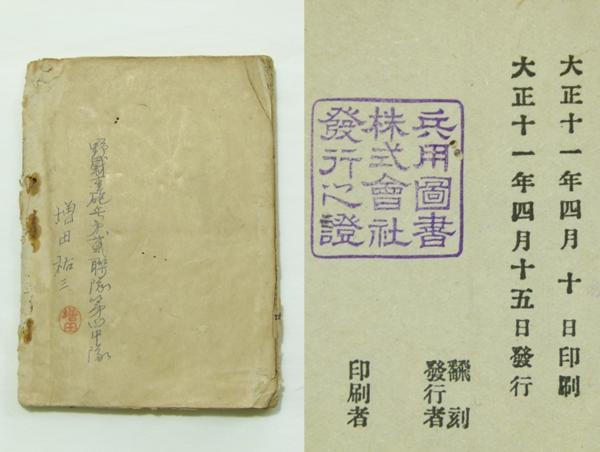 野戰重砲兵第貳聯隊第四中隊
増田祐三
増田
大正十一年四月十日印刷
大正十一年四月十五日發行
兵用圖書
株式會社
發行之證
飜刻
發行者
印刷者